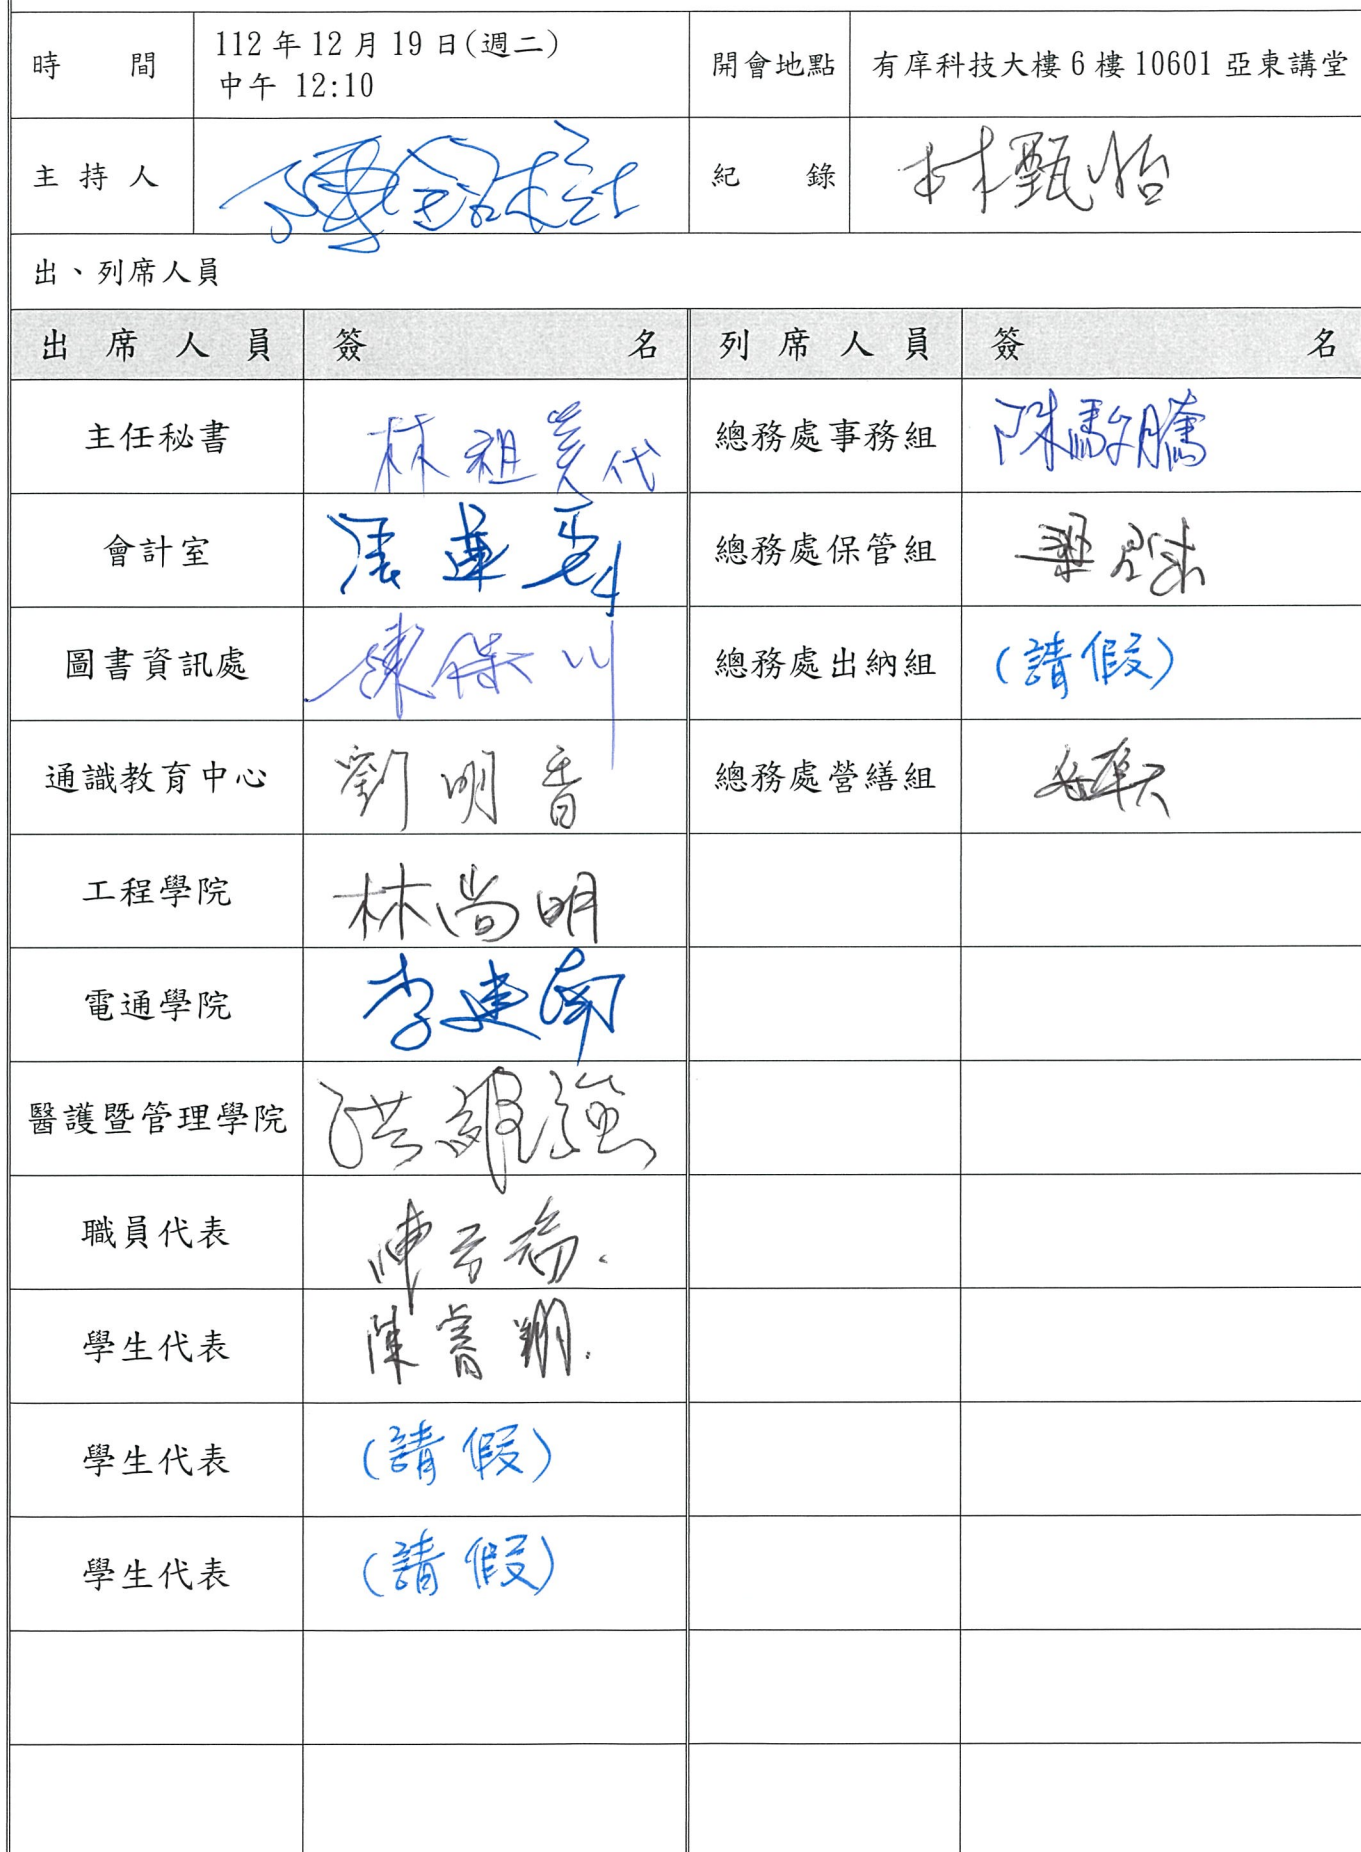 時 間 112年12月19日(週二) 開會地點 有庠科技大樓6樓10601亞東講堂
中午 12:10
主持人 紀 錄 林甄怡
出、列席人員
出席人員 簽 名 列席人員 簽 名
主任秘書 林祖美代 總務處事務組 陳駿騰
會計室 總務處保管組 梁
圖書資訊處 陳保川 總務處出納組 (請假)
通識教育中心 劉明香 總務處營繕組
工程學院 林尚明
電通學院 李建南
醫護暨管理學院 洪維強
職員代表 陳
學生代表 陳睿翔.
學生代表 (請假)
學生代表 (請假)